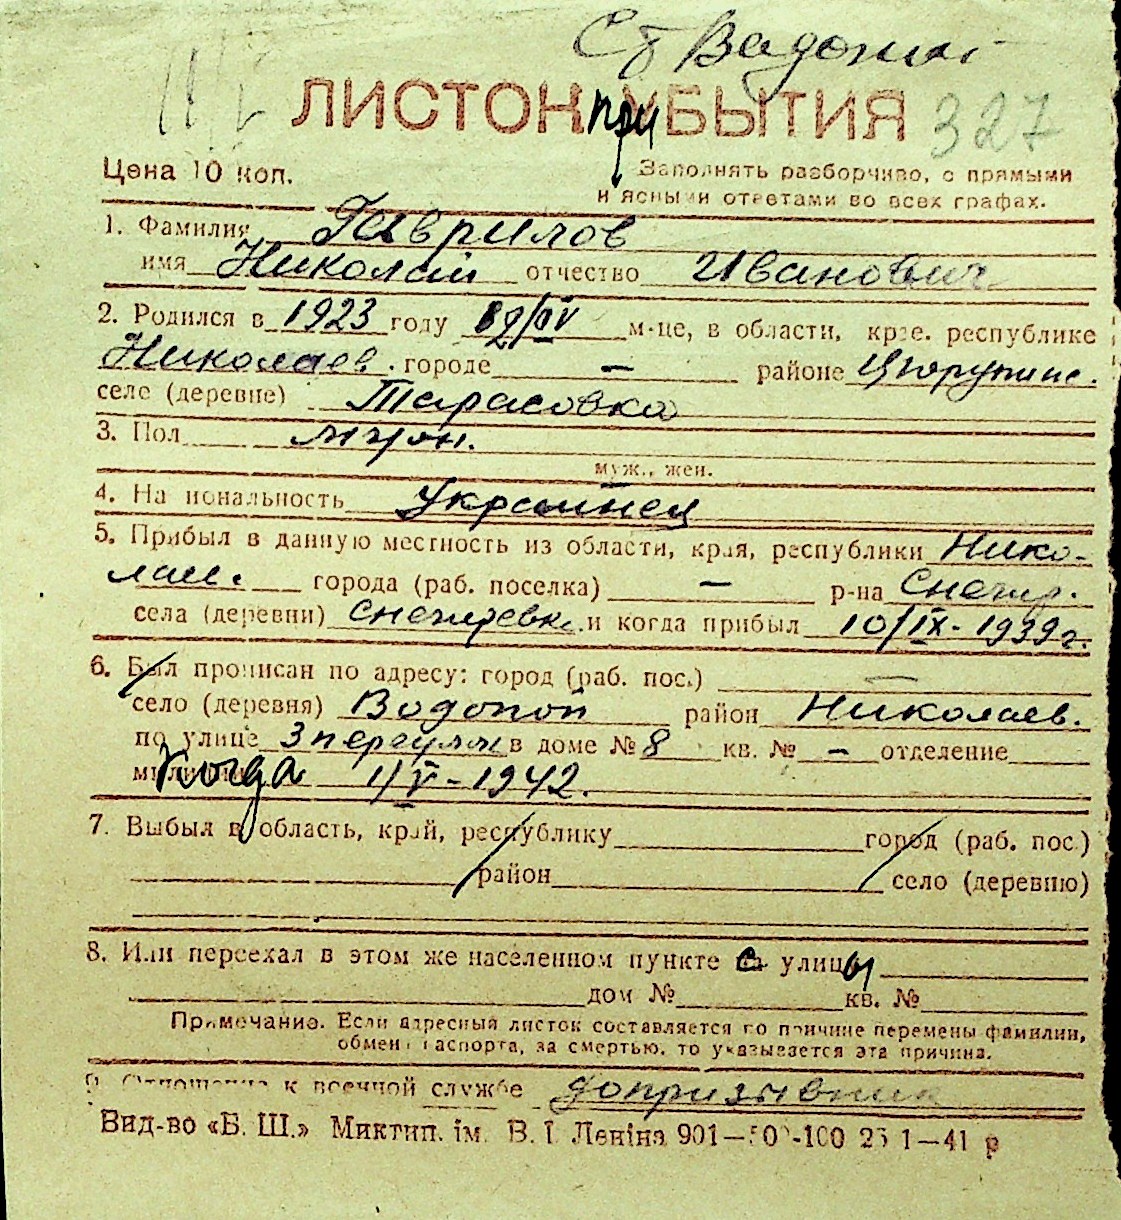 Ст Водопой
ЛИСТОК приБЫТИЯ 327
Цена 10 коп. Заполнять разборчиво, с прямыми
и ясными ответами во всех графах.
1. Фамилия Гаврилов
имя Николай отчество Иванович
2. Родился в 1923 году м-це, в области, крае, республике
Николаев. городе — районе Цюрупинс.
селе (деревне) Тарасовка
3. Пол
муж., жен.
4. Национальность Украинец
5. Прибыл в данную местность из области, края, республики Нико-
лаев. города (раб. поселка) — р-на Снегир.
села (деревни) Снегиревк. и когда прибыл 10/IX-1939г.
6. Был прописан по адресу: город (раб. пос.) —
село (деревня) Водопой район Николаев.
по улице 3 переулок в доме № 8 кв. № — отделение
милиции когда 1/V-1942.
7. Выбыл в область, край, республику город (раб. пос.)
район село (деревню)
8. Или переехал в этом же населенном пункте с улицы
дом № кв. №
Примечание. Если адресный листок составляется по причине перемены фамилии,
обмена паспорта, за смертью, то указывается эта причина.
9. Отношение к военной службе допризывник
Вид-во «Б. Ш.» Миктип. ім. В. І. Леніна 901—50-100 25 1—41 р